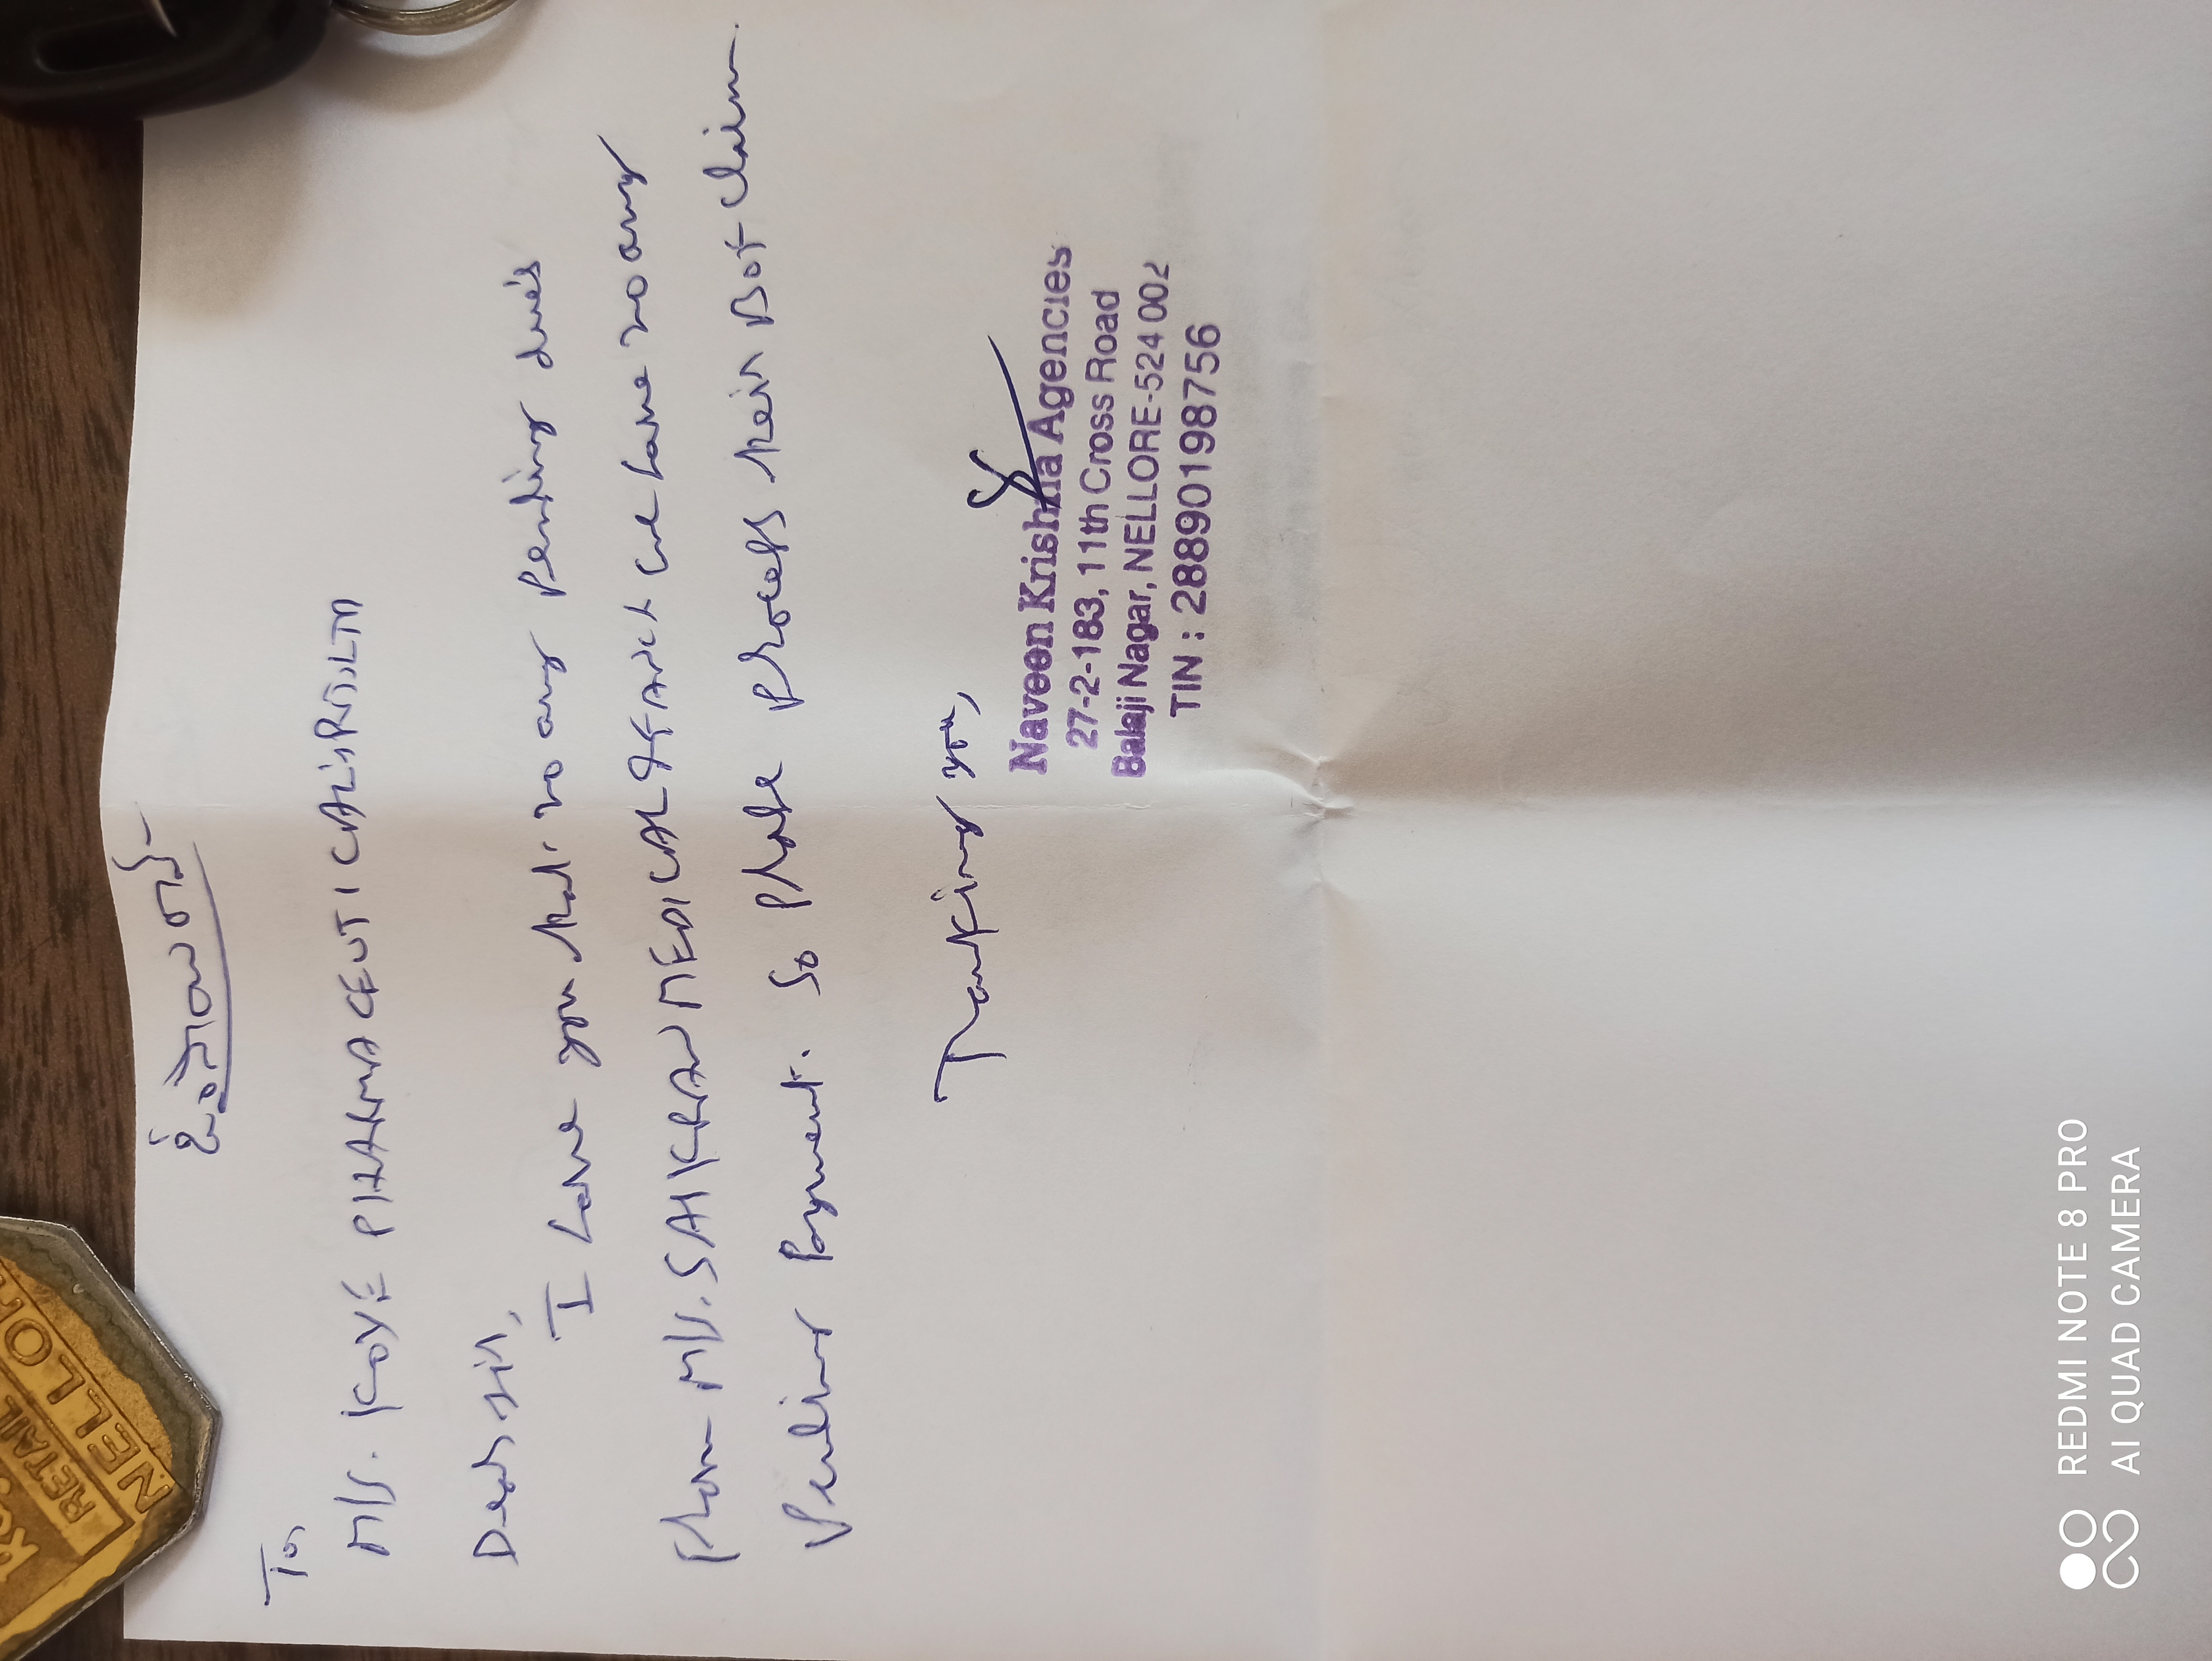 To,
M/s. KOYE PHARMACEUTICALS PVT.LTD
Dear sir,
I have you that no any pending dues
from M/s. SAI KIRAN MEDICAL & FANCY we have no any
pending payment. So please process their DOT claim.
Thanking you,
Naveen Krishna Agencies
27-2-183, 11th Cross Road
Balaji Nagar, NELLORE-524 002
TIN : 28890198756
RETAIL
NELLO
REDMI NOTE 8 PRO
AI QUAD CAMERA